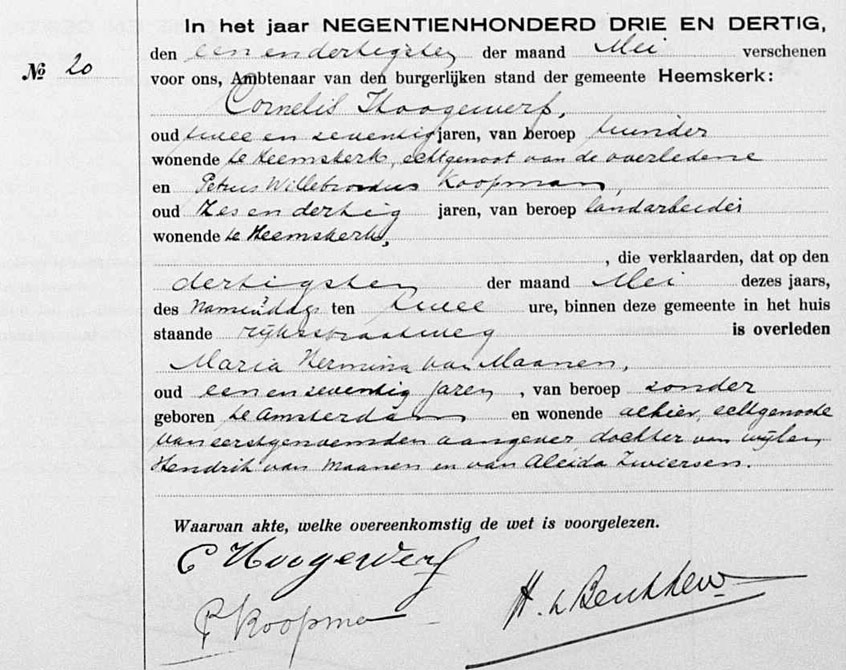 In het jaar NEGENTIENHONDERD DRIE EN DERTIG,
den een en dertigsten der maand Mei verschenen
№ 20
voor ons, Ambtenaar van den burgerlijken stand der gemeente Heemskerk:
Cornelis Hoogewerf,
oud twee en zeventig jaren, van beroep tuinder
wonende te Heemskerk, echtgenoot van de overledene
en Petrus Willebrordus Koopman,
oud zes en dertig jaren, van beroep landarbeider
wonende te Heemskerk,
, die verklaarden, dat op den
dertigsten der maand Mei dezes jaars,
des namiddags ten twee ure, binnen deze gemeente in het huis
staande Rijksstraatweg is overleden
Maria Hermina van Maanen,
oud een en zeventig jaren , van beroep zonder
geboren te Amsterdam en wonende alhier, echtgenoote
van eerstgenoemden aangever, dochter van wijlen
Hendrik van Maanen en van Aleida Zwiersen.
Waarvan akte, welke overeenkomstig de wet is voorgelezen.
C Hoogewerf
P Koopman
H.